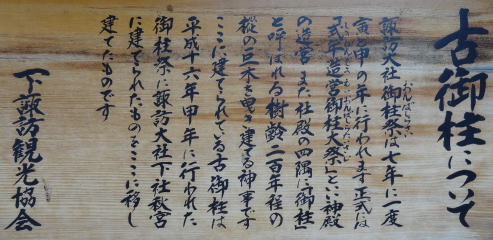 古御柱について
諏訪大社御柱祭は七年に一度
寅と申の年に行われます正式は
「式年造営御柱大祭」といい神殿
の造営 また社殿の四隅に「御柱」
と呼ばれる樹齢二百年程の
樅の巨木を曳き建てる神事です
ここに建てられている古御柱は
平成十六年甲申年に行われた
御柱祭に諏訪大社下社秋宮
に建てられたものをここに移し
建てたものです
下諏訪観光協会